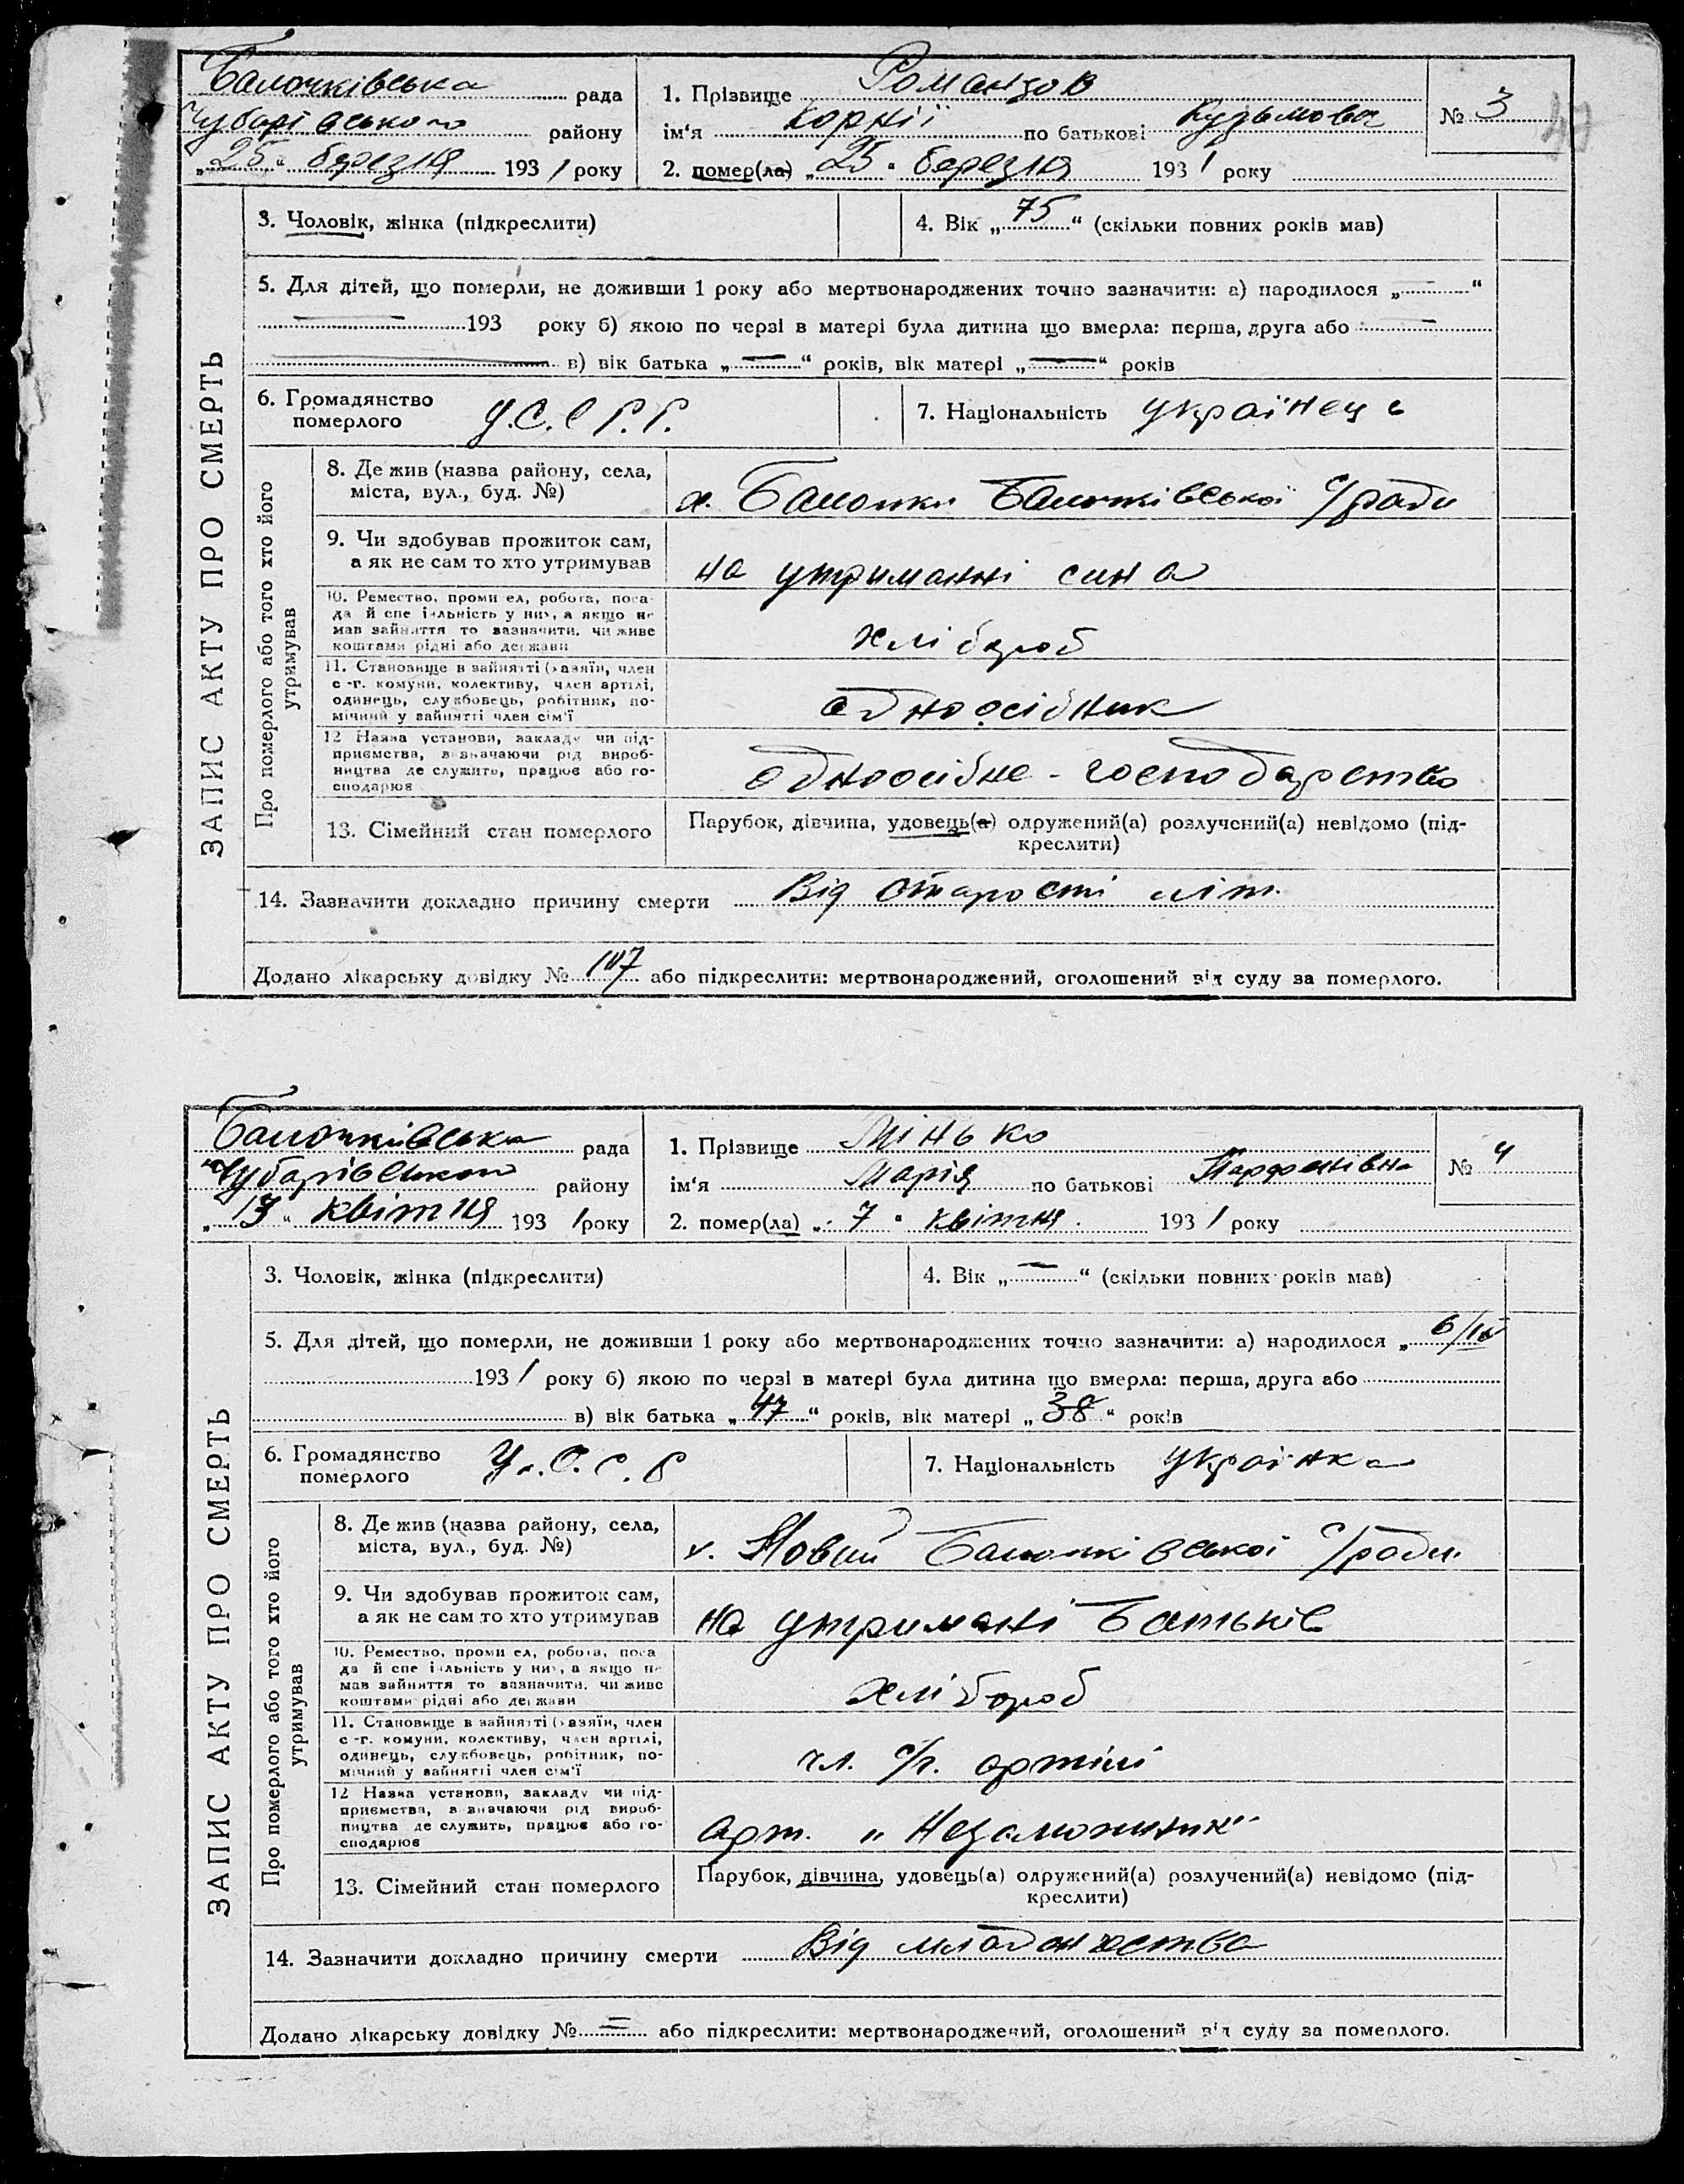 Балочківська рада
Чубарівського району
„25“ березня 1931 року
1. Прізвище Романцов
ім‘я Корнії по батькові Кузьмова
2. помер(ла) „25“ березня 1931 року
№ 3
ЗАПИС АКТУ ПРО СМЕРТЬ
3. Чоловік, жінка (підкреслити)
4. Вік „75“ (скільки повних років мав)
5. Для дітей, що померли, не доживши 1 року або мертвонароджених точно зазначити: а) народилося „—“
— 193 року б) якою по черзі в матері була дитина що вмерла: перша, друга або —
— в) вік батька „—“ років, вік матері „—“ років
6. Громадянство
померлого
У.С.С.Р.Р.
7. Національність українець
Про померлого або того хто його
утримував
8. Де жив (назва району, села,
міста, вул., буд. №)
х. Балочки Балочківської с/ради
9. Чи здобував прожиток сам,
а як не сам то хто утримував
на утриманні сина
10. Ремество, проми ел, робота, поса-
да й спе іяльність у них, а якщо не
мав зайняття то зазначити, чи живе
коштами рідні або держави
хлібороб
11. Становище в зайнятті (хазяїн, член
с.-г. комуни, колективу, член артілі,
одинець, службовець, робітник, по-
мічний у зайнятті член сім‘ї
одноосібник
12 Назва установи, закладу чи під-
приємства, визначаючи рід вироб-
ництва де служить, працює або го-
сподарює
одноосібне - господарство
13. Сімейний стан померлого
Парубок, дівчина, удовець(а) одружений(а) розлучений(а) невідомо (під-
креслити)
14. Зазначити докладно причину смерти Від старості літ.
Додано лікарську довідку № 107 або підкреслити: мертвонароджений, оголошений від суду за померлого.
Балочківська рада
Чубарівського району
„13“ квітня 1931 року
1. Прізвище Мінько
ім‘я Марія по батькові Парфенівна
2. помер(ла) „7“ квітня 1931 року
№ 4
ЗАПИС АКТУ ПРО СМЕРТЬ
3. Чоловік, жінка (підкреслити)
4. Вік „—“ (скільки повних років мав)
5. Для дітей, що померли, не доживши 1 року або мертвонароджених точно зазначити: а) народилося „6/IV
1931 року б) якою по черзі в матері була дитина що вмерла: перша, друга або
в) вік батька „47“ років, вік матері „38“ років
6. Громадянство
померлого
У.С.С.Р
7. Національність українка
Про померлого або того хто його
утримував
8. Де жив (назва району, села,
міста, вул., буд. №)
х. Новий Балочківської с/ради.
9. Чи здобував прожиток сам,
а як не сам то хто утримував
на утримані батьків
10. Ремество, проми ел, робота, поса
да й спе іяльність у них, а якщо не
мав зайняття то зазначити, чи живе
коштами рідні або держави
хлібороб
11. Становище в зайнятті (хазяїн, член
с.-г. комуни, колективу, член артілі,
одинець, службовець, робітник, по-
мічний у зайнятті член сім‘ї
чл. с/г. артілі
12 Назва установи, закладу чи під-
приємства, визначаючи рід вироб-
ництва де служить, працює або го-
сподарює
Арт. „Незаможник“
13. Сімейний стан померлого
Парубок, дівчина, удовець(а) одружений(а) розлучений(а) невідомо (під-
креслити)
14. Зазначити докладно причину смерти Від младенчества
Додано лікарську довідку № — або підкреслити: мертвонароджений, оголошений від суду за померлого.